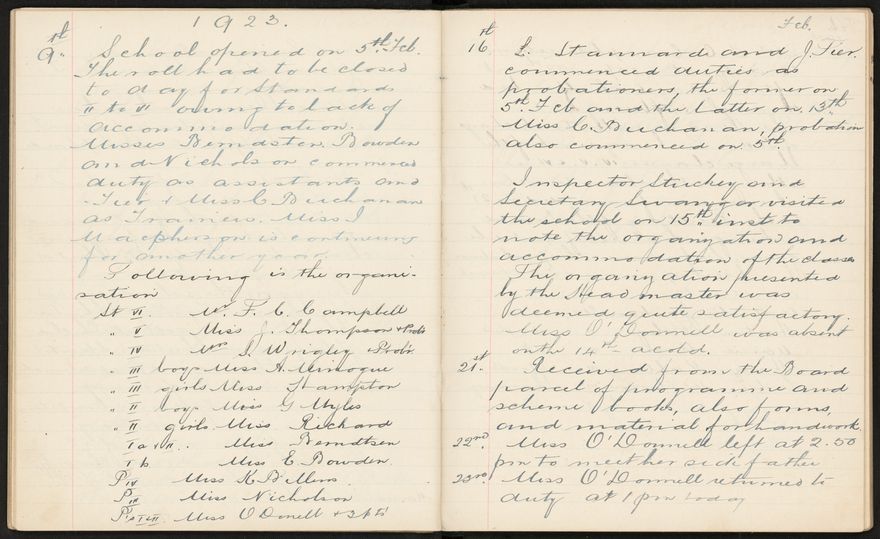 1923.
9th School opened on 5th Feb.
The roll had to be closed
to day for Standards
II to VI owing to lack of
accommodation.
Misses Berndsten, Bowden
and Nicholson commenced
duty as assistants and
Tier & Miss C Buchanan
as Trainees. Miss I
Macpherson is continuing
for another year.
Following is the organi-
sation
St VI. Mr F. C. Campbell
" V Miss J. Thompson & Probr
" IV Mrs J. Wrigley & Probr
" III boys Miss A. Minogue
" III girls Miss Stampton
" II boys Miss G Myles
" II girls Miss Rickard
I a & II. Miss Berndtsen
I b Miss E. Bowden
P IV Miss K. Billens
P III Miss Nicholson
P I & II Miss O'Donnell &
Feb.
16th L. Stannard and J. Tier
commenced duties as
probationers, the former on
5th Feb and the latter on 13th
Miss C. Buchanan, probation
also commenced on 5th
Inspector Stuckey and
Secretary Swanger visited
the school on 15th inst to
note the organization and
accommodation of the classes
The organization presented
by the Head master was
deemed quite satisfactory.
Miss O'Donnell was absent
on the 14th a cold.
21st. Received from the Board
parcel of programme and
scheme books, also forms,
and material for handwork.
22nd. Miss O'Donnell left at 2.50
pm to meet her sick father
23rd. Miss O'Donnell returned to
duty at 1 pm today